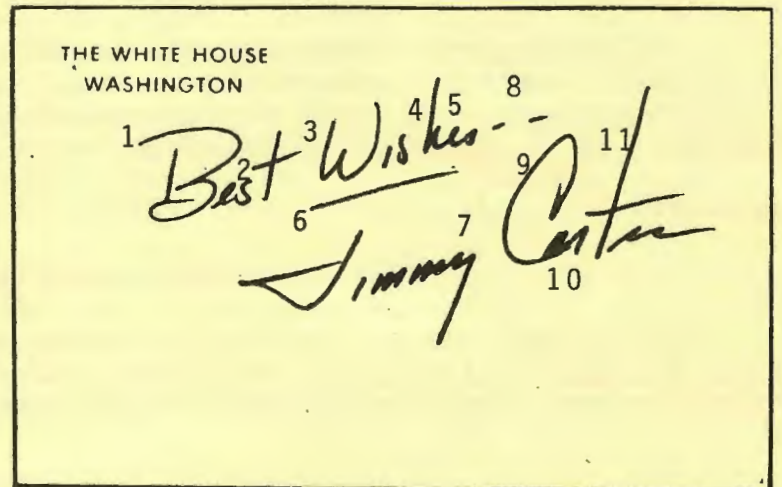 THE WHITE HOUSE
WASHINGTON
1 2 3 4 5 8
Best Wishes--
6 7 9 11
Jimmy Carter
10